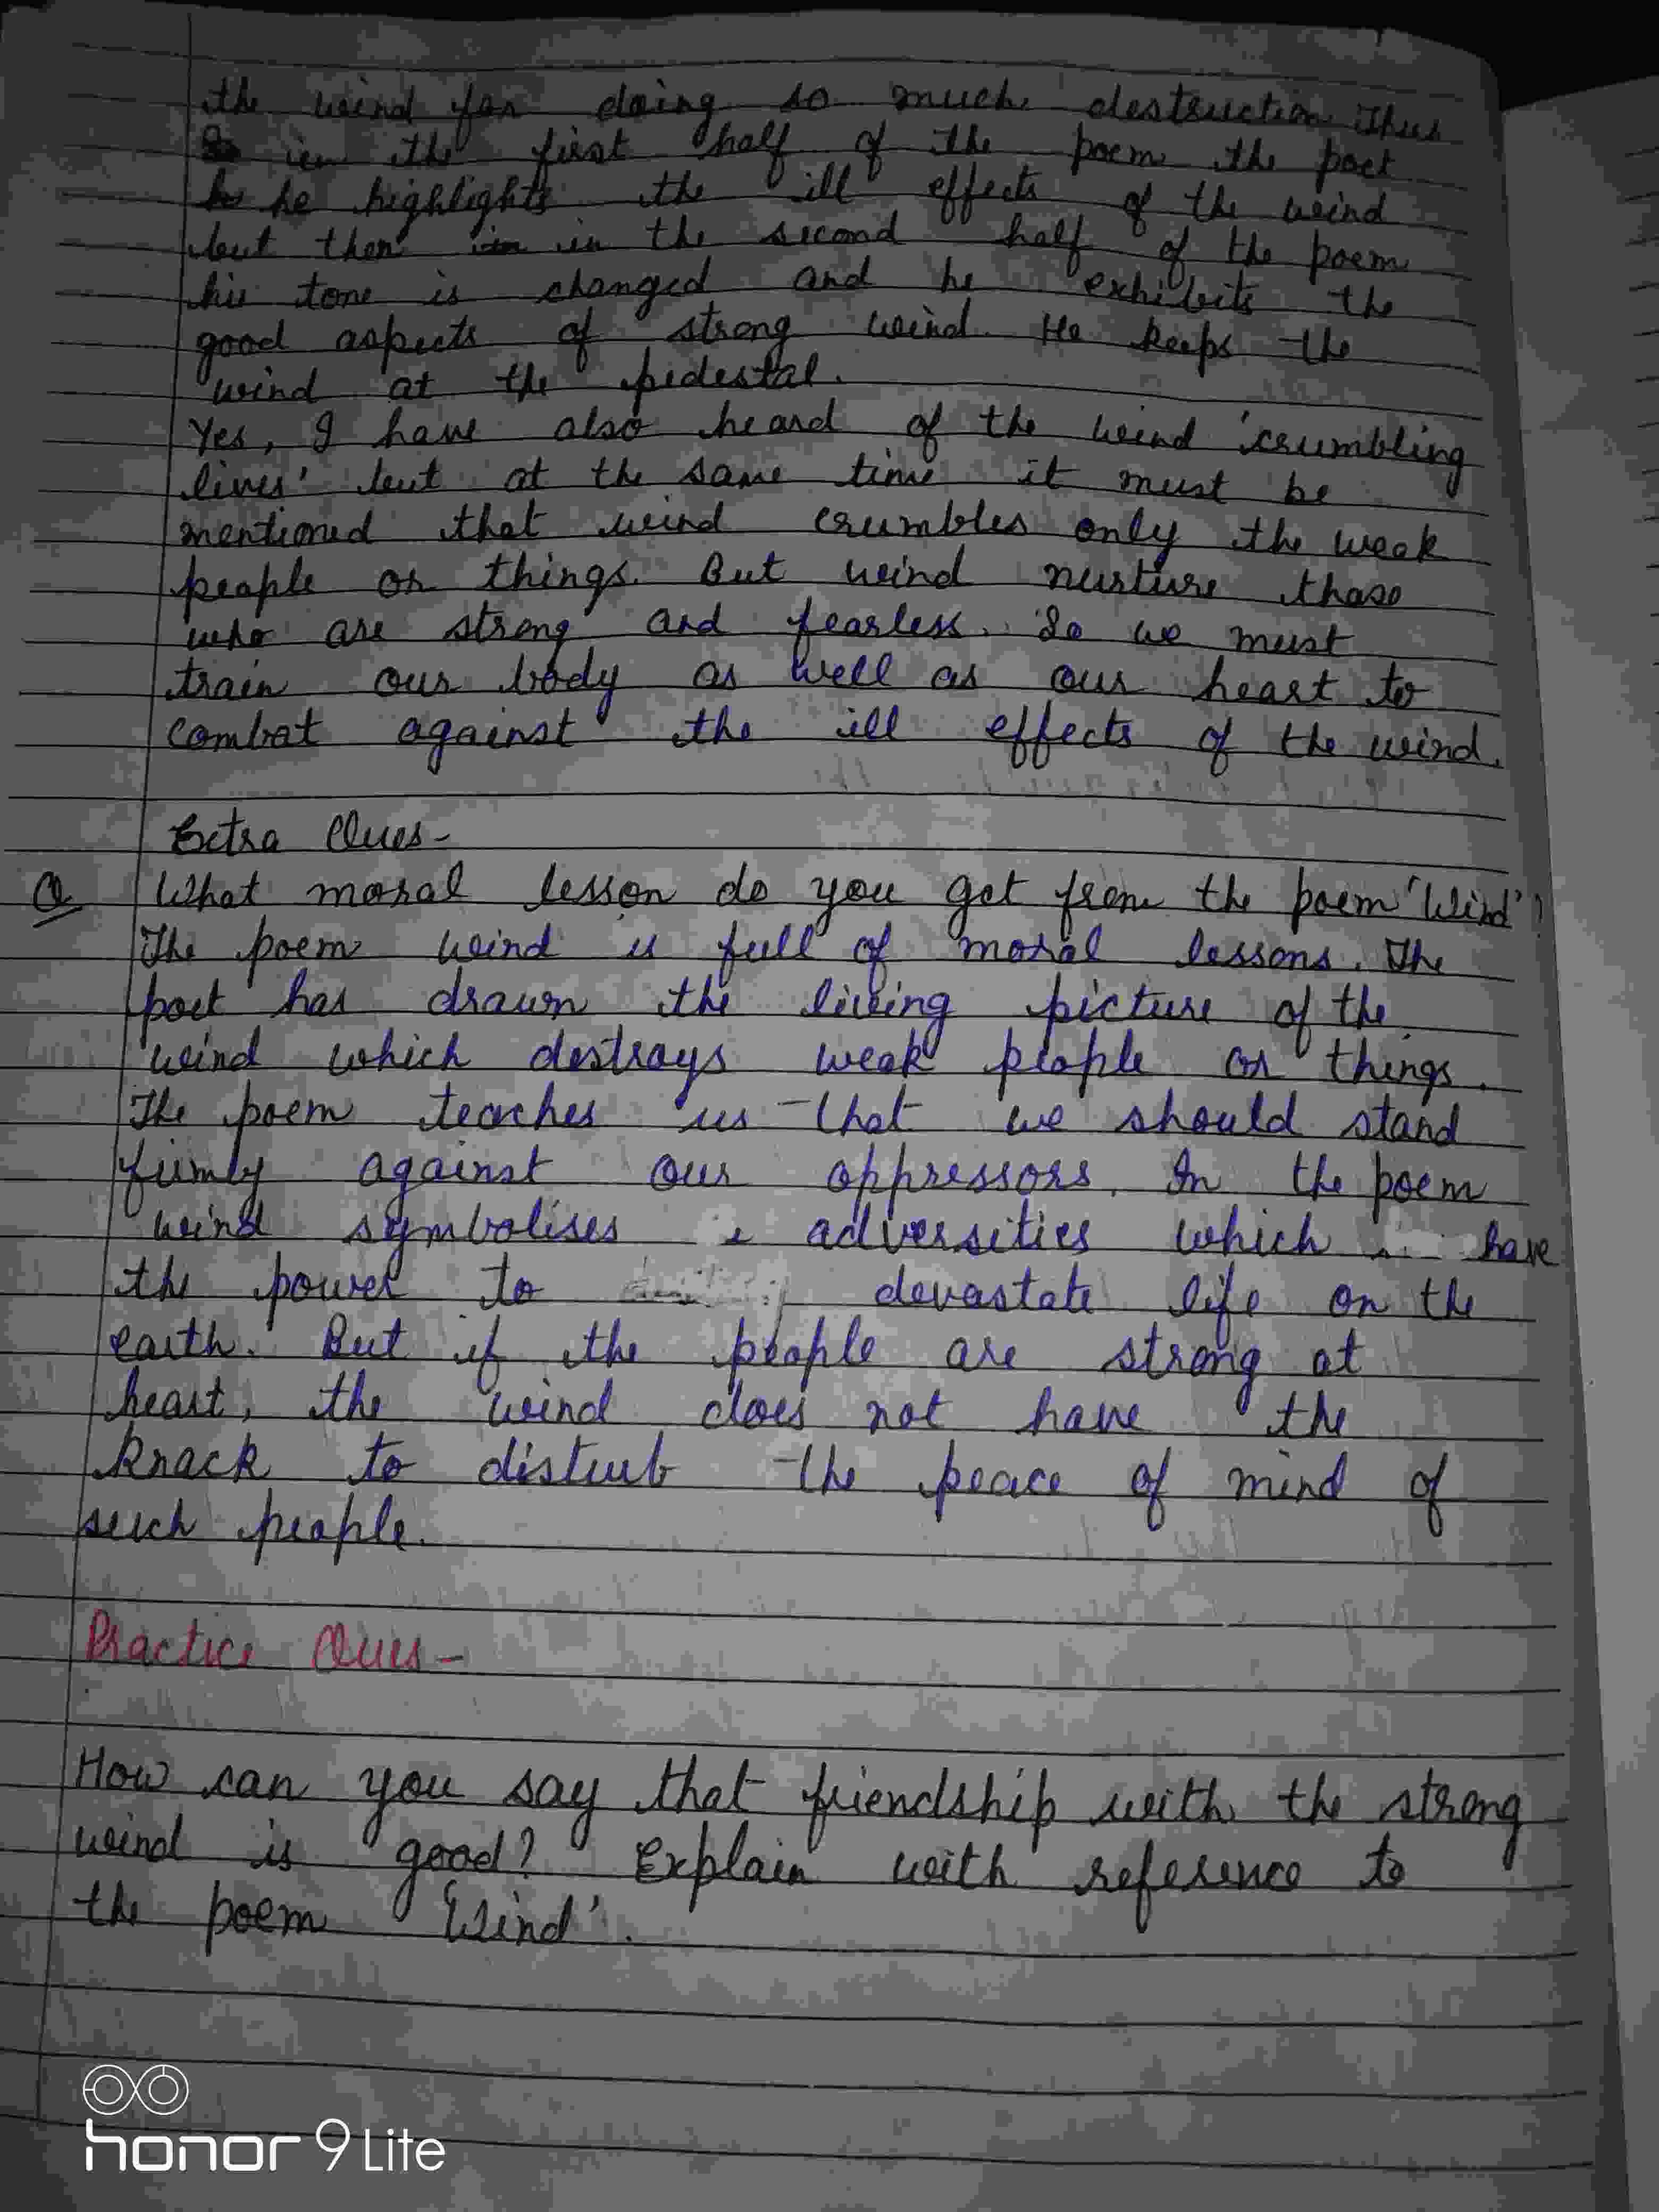 the wind for doing so much destruction. Thus
in the first half of the poem the poet
he highlights the ill effects of the wind
but then in in the second half of the poem
his tone is changed and he exhibits the
good aspects of strong wind. He keeps the
wind at the pedestal.
Yes, I have also heard of the wind 'crumbling
lives' but at the same time it must be
mentioned that wind crumbles only the weak
people or things. But wind nurture those
who are strong and fearless. So we must
train our body as well as our heart to
combat against the ill effects of the wind.
Extra Ques-
Q What moral lesson do you get from the poem 'Wind'?
The poem wind is full of moral lessons. The
poet has drawn the living picture of the
wind which destroys weak people or things.
The poem teaches us that we should stand
firmly against our oppressors. In the poem
wind symbolises adversities which have
the power to devastate life on the
earth. But if the people are strong at
heart, the wind does not have the
knack to distrub the peace of mind of
such people.
Practice Ques-
How can you say that friendship with the strong
wind is good? Explain with reference to
the poem 'Wind'.
honor 9 Lite